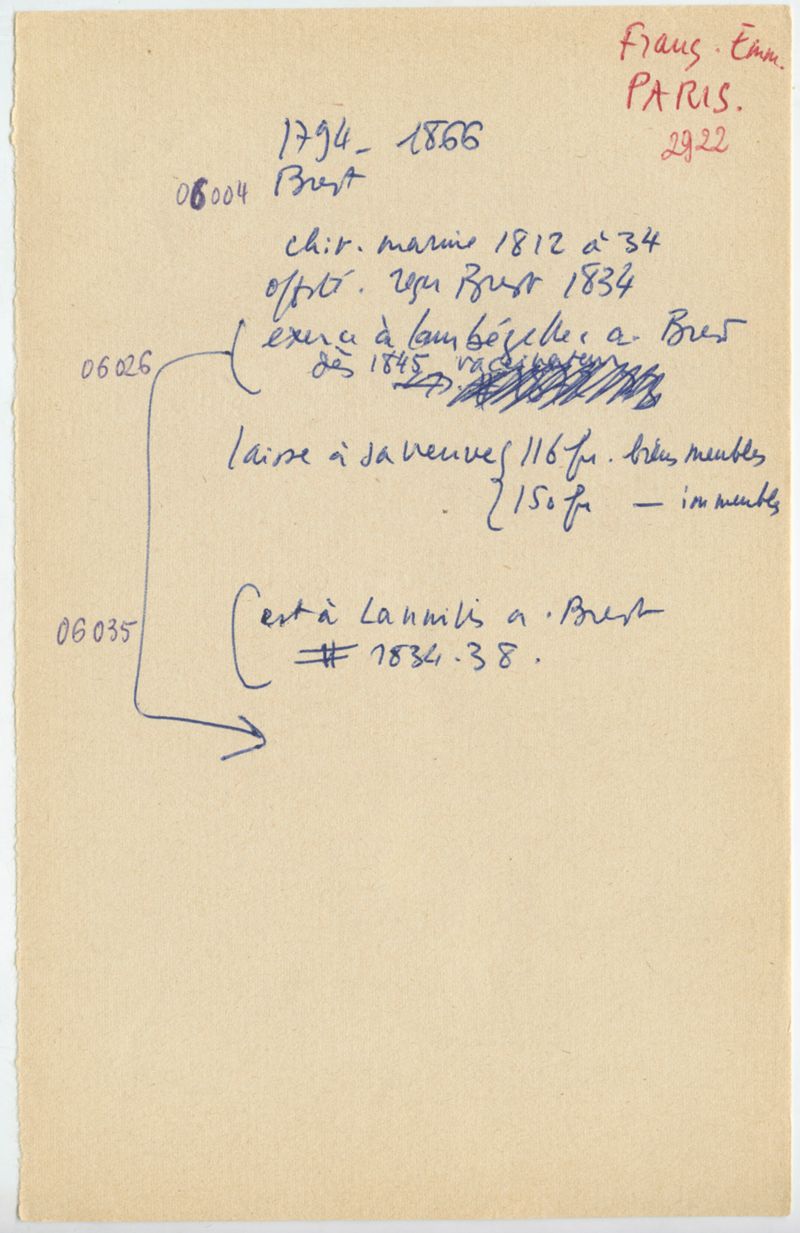 Franç. Emm.
PARIS.
2922
1794 - 1866
06004 Brest
chir. marine 1812 à 34
reçu Brest 1834
exerce à Lambézellec a. Brest
06026
dès 1845 vaccinateur
laisse à sa veuve { 116 fr. biens meubles
{ 150 fr — immeubles
(est à Lannilis a. Brest
06035
1834.38.